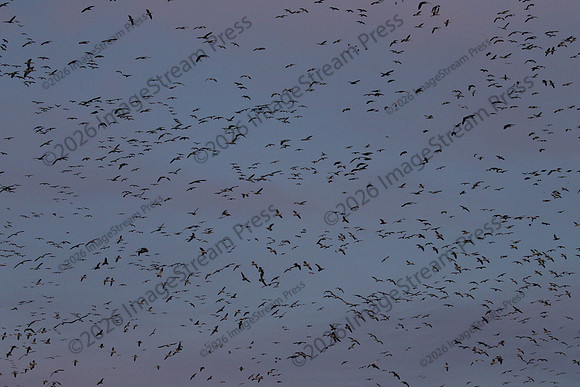 ©2026 ImageStream Press
©2026 ImageStream Press
©2026 ImageStream Press
©2026 ImageStream Press
©2026 ImageStream Press
©2026 ImageStream Press
©2026 ImageStream Press
©2026 ImageStream Press
©2026 ImageStream Press
©2026 ImageStream Press
©2026 ImageStream Press
©2026 ImageStream Press